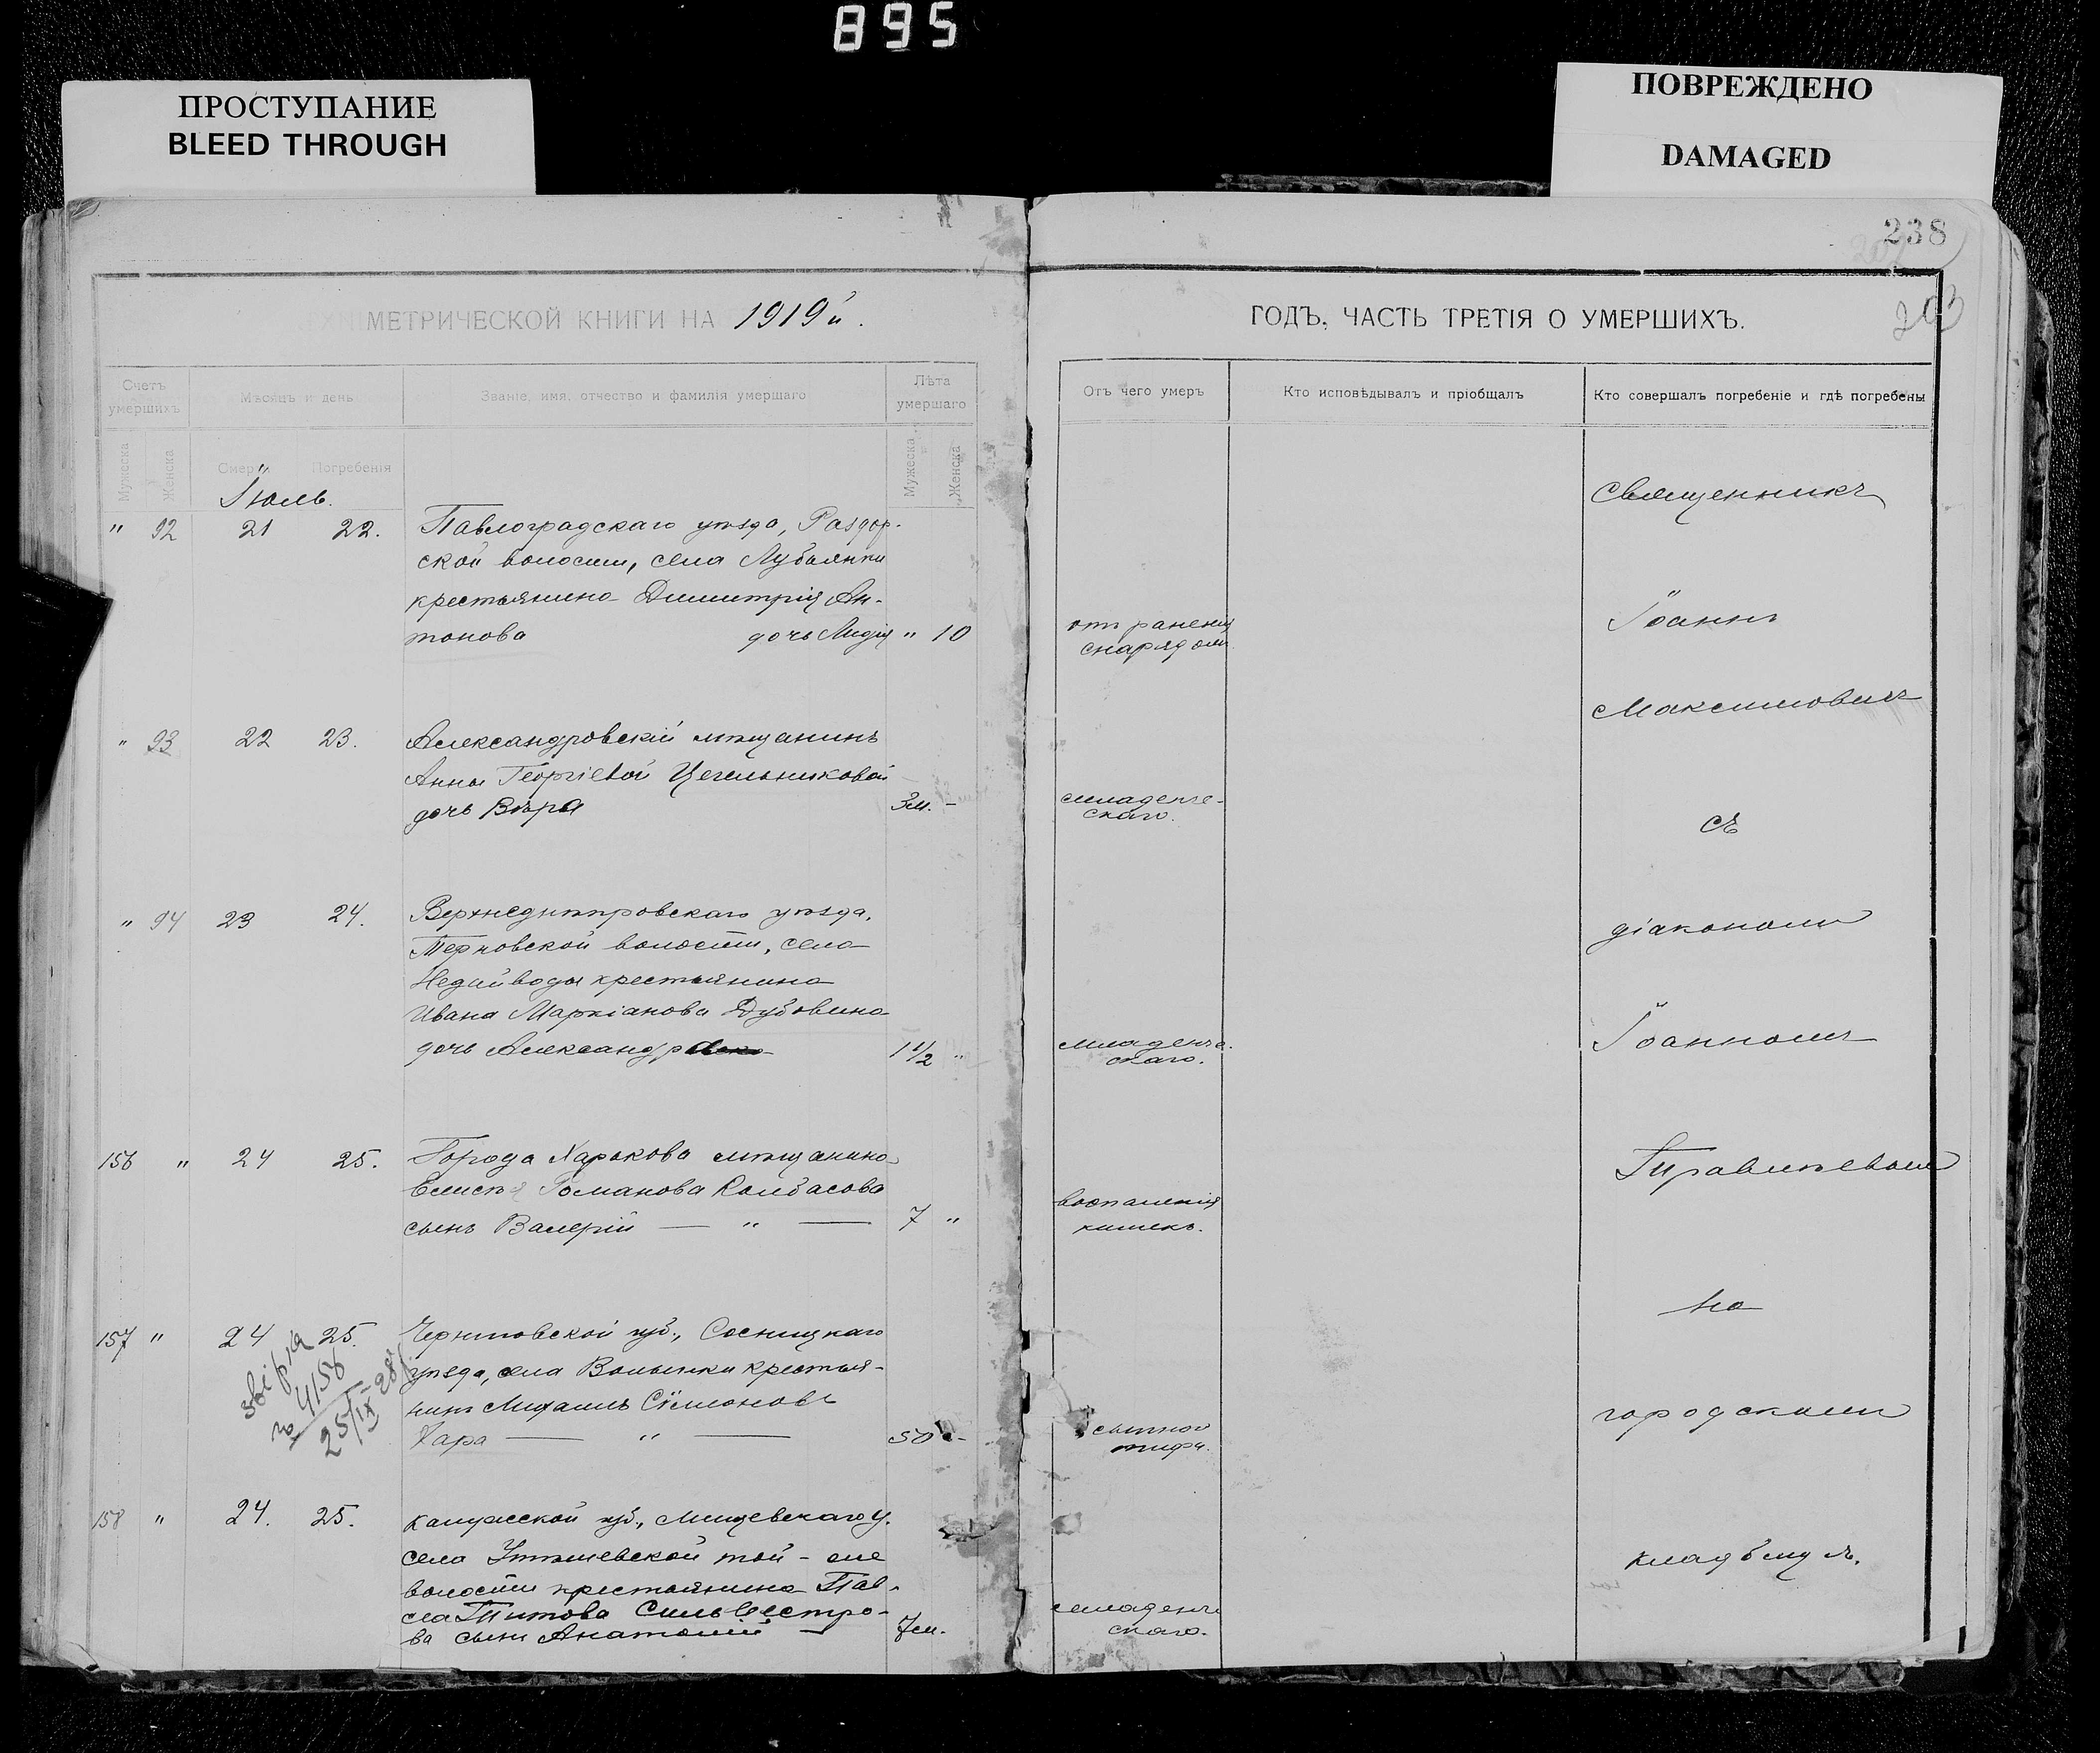 895
ПРОСТУПАНИЕ
BLEED THROUGH
ПОВРЕЖДЕНО
DAMAGED
238
203
МЕТРИЧЕСКОЙ КНИГИ НА 1919 й.
ГОДЪ, ЧАСТЬ ТРЕТІЯ О УМЕРШИХЪ.
Счетъ умершихъ
Мѣсяцъ и день
Званіе, имя, отчество и фамилія умершаго
Лѣта умершаго
Отъ чего умеръ
Кто исповѣдывалъ и пріобщалъ
Кто совершалъ погребеніе и гдѣ погребены
Мужеска
Женска
Смерти
Погребенія
Мужеска
Женска
Іюль.
" 92 21 22. Павлоградскаго уѣзда, Раздор-
ской волости, села Лубянки
крестьянина Димитрія Ан-
тонова дочь Лидія " 10
отъ раненія
снарядомъ
" 93 22 23. Александровскій мѣщанинъ
Анны Георгіевой Цегельниковой
дочь Вѣра 3 м. -
младенче-
скаго.
" 94 23 24. Верхнеднѣпровскаго уѣзда,
Терновской волости, села
Недайводы крестьянина
Ивана Маркіанова Дубовика
дочь Александра 1 1/2 "
младенче-
скаго.
156 " 24 25. Города Харькова мѣщанина
Романова Колбасова
сынъ Валерій — " — 7 "
воспаленія
кишекъ.
157 " 24 25. Черниговской губ., Сосницкаго
уѣзда, села Волынки крестья-
нинъ Михаилъ Сѵмоновъ
Хара — " — 50 -
сыпного
тифа.
звіряв
№ 4158
25/IX 28
158 " 24. 25. Калужской губ., Мещевскаго у.
села той-же
волости крестьянина Пав-
ла Титова Сильвестро-
ва сынъ Анатолій — 7 м.
младенче
скаго.
Священникъ
Іоаннъ
Максимовичъ
съ
діакономъ
Іоанномъ
на
городскомъ
кладбищѣ.